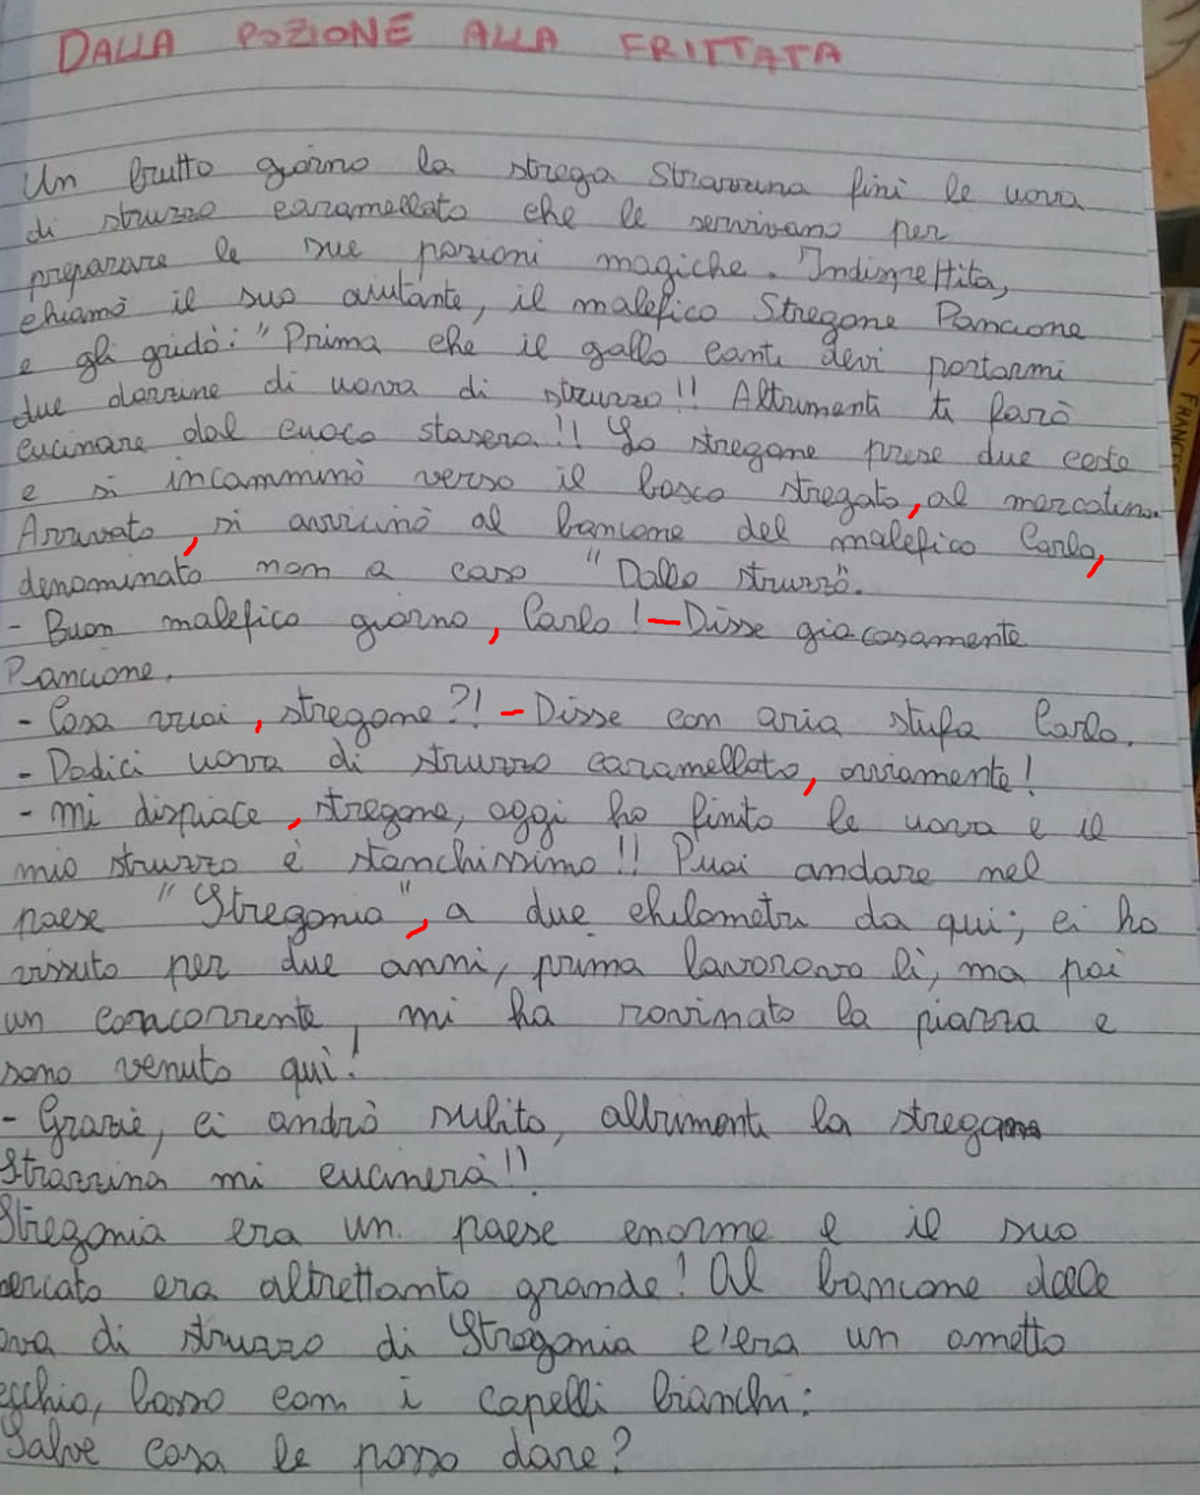 DALLA POZIONE ALLA FRITTATA
Un brutto giorno la strega Strazzina finì le uova
di struzzo caramellato che le servivano per
preparare le sue pozioni magiche. Indispettita,
chiamò il suo aiutante, il malefico Stregone Pancione
e gli gridò: "Prima che il gallo canti devi portarmi
due dozzine di uova di struzzo!! Altrimenti ti farò
cucinare dal cuoco stasera!! Lo stregone prese due ceste
e si incamminò verso il bosco stregato, al mercatino.
Arrivato, si avvicinò al bancone del malefico Carlo,
denominato non a caso "Dallo struzzo".
- Buon malefico giorno, Carlo! - Disse giocosamente
Pancione.
- Cosa vuoi, stregone?! - Disse con aria stufa Carlo.
- Dodici uova di struzzo caramellato, ovviamente!
- Mi dispiace, stregone, oggi ho finito le uova e il
mio struzzo è stanchissimo!! Puoi andare nel
paese "Stregonia", a due chilometri da qui; ci ho
vissuto per due anni, prima lavoravo lì, ma poi
un concorrente, mi ha rovinato la piazza e
sono venuto qui!
- Grazie, ci andrò subito, altrimenti la strega
Strazzina mi cucinerà!!
Stregonia era un paese enorme e il suo
mercato era altrettanto grande! Al bancone delle
uova di struzzo di Stregonia c'era un ometto
vecchio, basso con i capelli bianchi:
Salve cosa le posso dare?